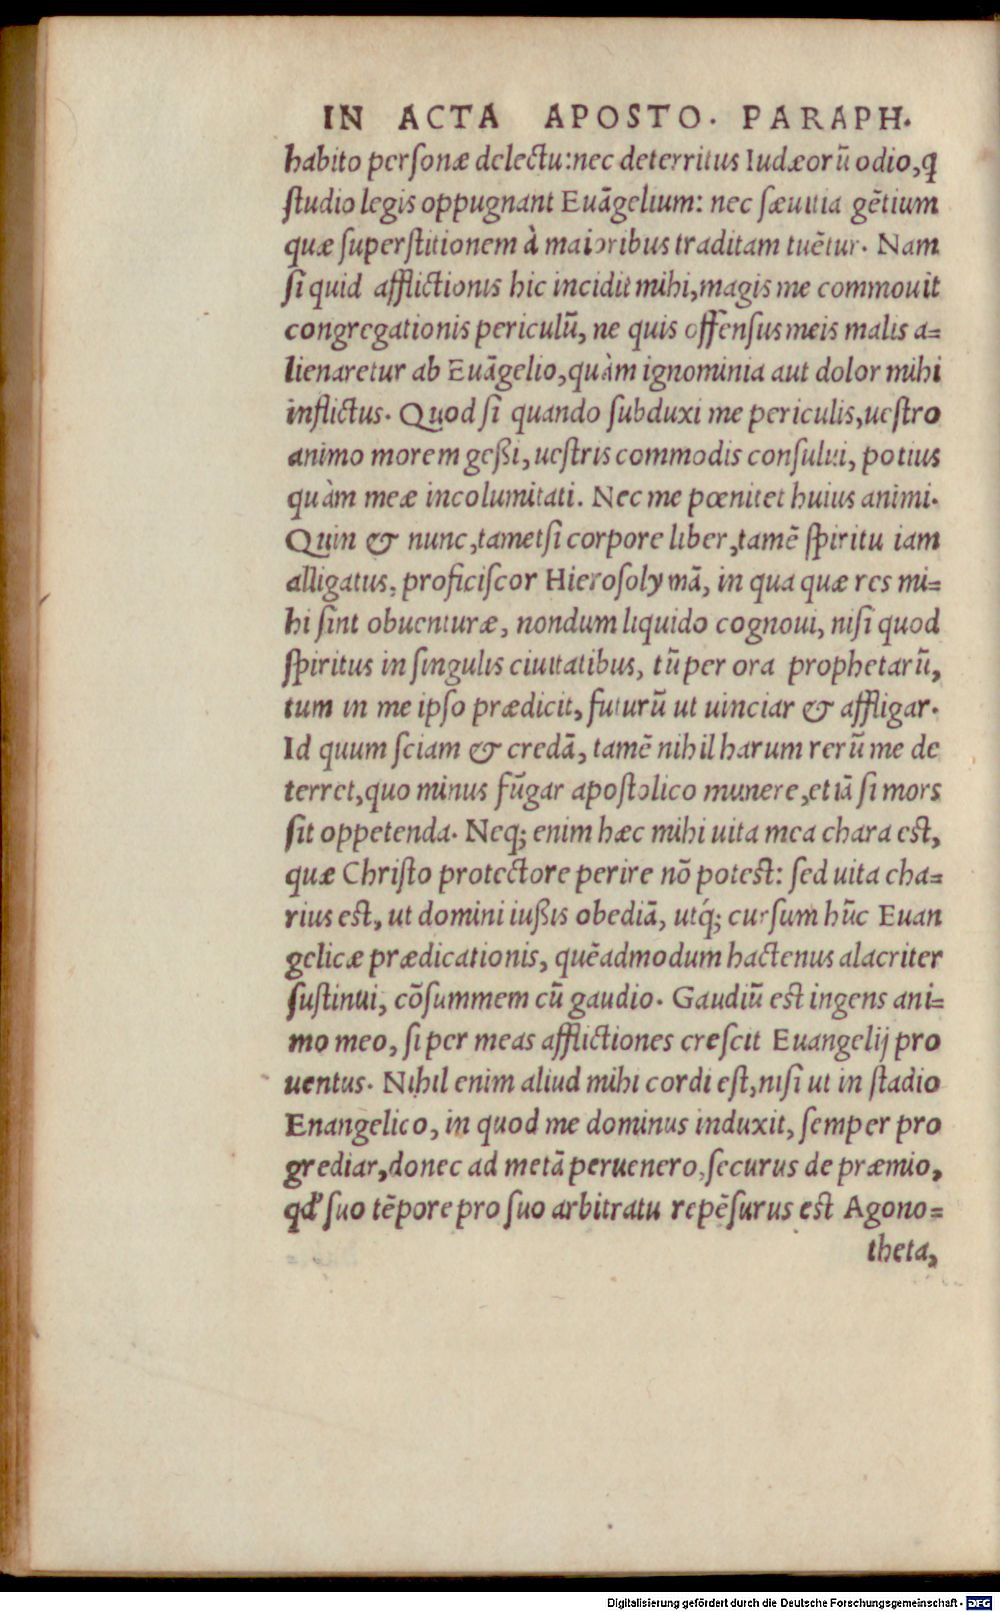 IN ACTA APOSTO. PARAPH.
habito perſonæ delectu: nec deterritus Iudæorū odio, ꝗ
ſtudio legis oppugnant Euāgelium: nec ſæuitia gētium
quæ ſuperſtitionem à maioribus traditam tuētur. Nam
ſi quid afflictionis hic incidit mihi, magis me commouit
congregationis periculū, ne quis offenſus meis malis a=
lienaretur ab Euāgelio, quàm ignominia aut dolor mihi
inflictus. Quod ſi quando ſubduxi me periculis, ueſtro
animo morem geßi, ueſtris commodis conſului, potius
quàm meæ incolumitati. Nec me pœnitet huius animi.
Quin & nunc, tametſi corpore liber, tamē ſpiritu iam
alligatus, proficiſcor Hieroſolymā, in qua quæ res mi=
hi ſint obuenturæ, nondum liquido cognoui, niſi quod
ſpiritus in ſingulis ciuitatibus, tū per ora prophetarū,
tum in me ipſo prædicit, futurū ut uinciar & affligar.
Id quum ſciam & credā, tamē nihil harum rerū me de
terret, quo minus fūgar apoſtolico munere, etiā ſi mors
ſit oppetenda. Neq; enim hæc mihi uita mea chara eſt,
quæ Chriſto protectore perire nō poteſt: ſed uita cha=
rius eſt, ut domini iußis obediā, utq́; curſum hūc Euan
gelicæ prædicationis, quēadmodum hactenus alacriter
ſuſtinui, cōſummem cū gaudio. Gaudiū eſt ingens ani=
mo meo, ſi per meas afflictiones creſcit Euangelij pro
uentus. Nihil enim aliud mihi cordi eſt, niſi ut in ſtadio
Enangelico, in quod me dominus induxit, ſemper pro
grediar, donec ad metā peruenero, ſecurus de præmio,
qđ ſuo tēpore pro ſuo arbitratu repēſurus eſt Agono=
theta,
Digitalisierung gefördert durch die Deutsche Forschungsgemeinschaft - DFG